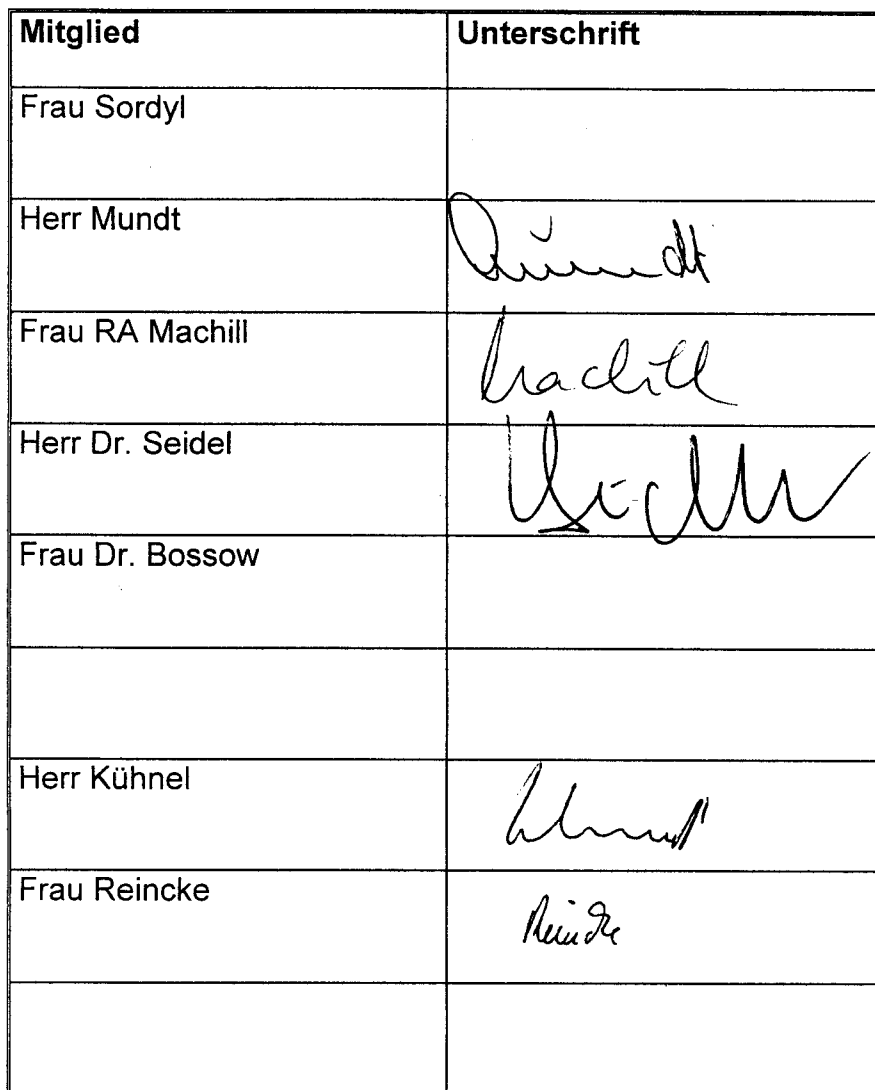 Mitglied Unterschrift
Frau Sordyl
Herr Mundt Mundt
Frau RA Machill Machill
Herr Dr. Seidel
Frau Dr. Bossow
Herr Kühnel
Frau Reincke Reincke